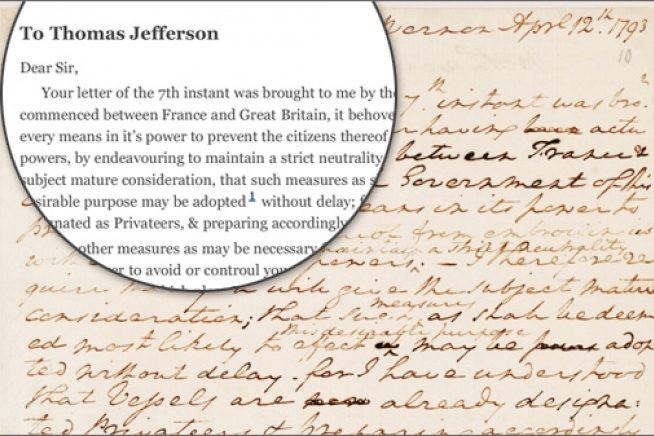 To Thomas Jefferson
Dear Sir,
Your letter of the 7th instant was brought to me by the
commenced between France and Great Britain, it behove
every means in it's power to prevent the citizens thereof
powers, by endeavouring to maintain a strict neutrality
subject mature consideration, that such measures as s
sirable purpose may be adopted 1 without delay; f
nated as Privateers, & preparing accordingly
other measures as may be necessary
er to avoid or controul you
ernon Apr. 12th. 1793
10
7th instant was bro.
having actu
between France &
Government of this
eans in its power to
not from embroiling us
maintain a strict neutrality
powers. — I therefore re
quire will give the subject mature
consideration; that such as shall be deem
measures
ed most likely to effect may be adop
this desirable purpose
ted without delay. for I have understood
that Vessels are already designa:
ted Privateers & preparing accordingly